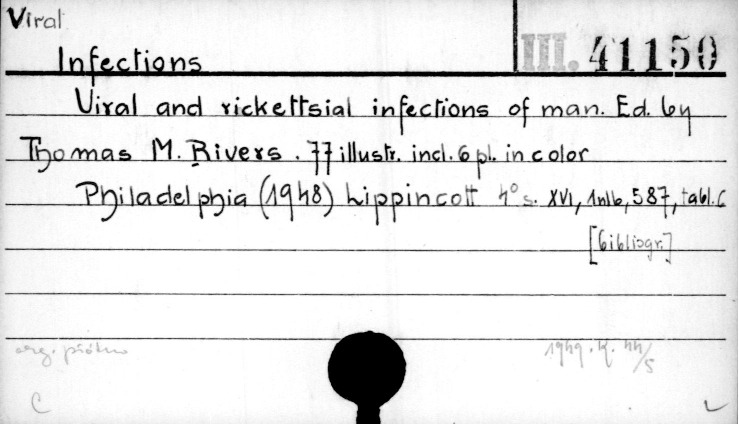 Viral
III. 41150
Infections
Viral and rickettsial infections of man. Ed. by
Thomas M. Rivers. 77 illustr. incl. 6 pl. in color
Philadelphia (1948) Lippincott 4° s. XVI, 1nlb, 587, tabl. 6
[bibliogr.]
oryg. płótno
1949. K. 44/5
C